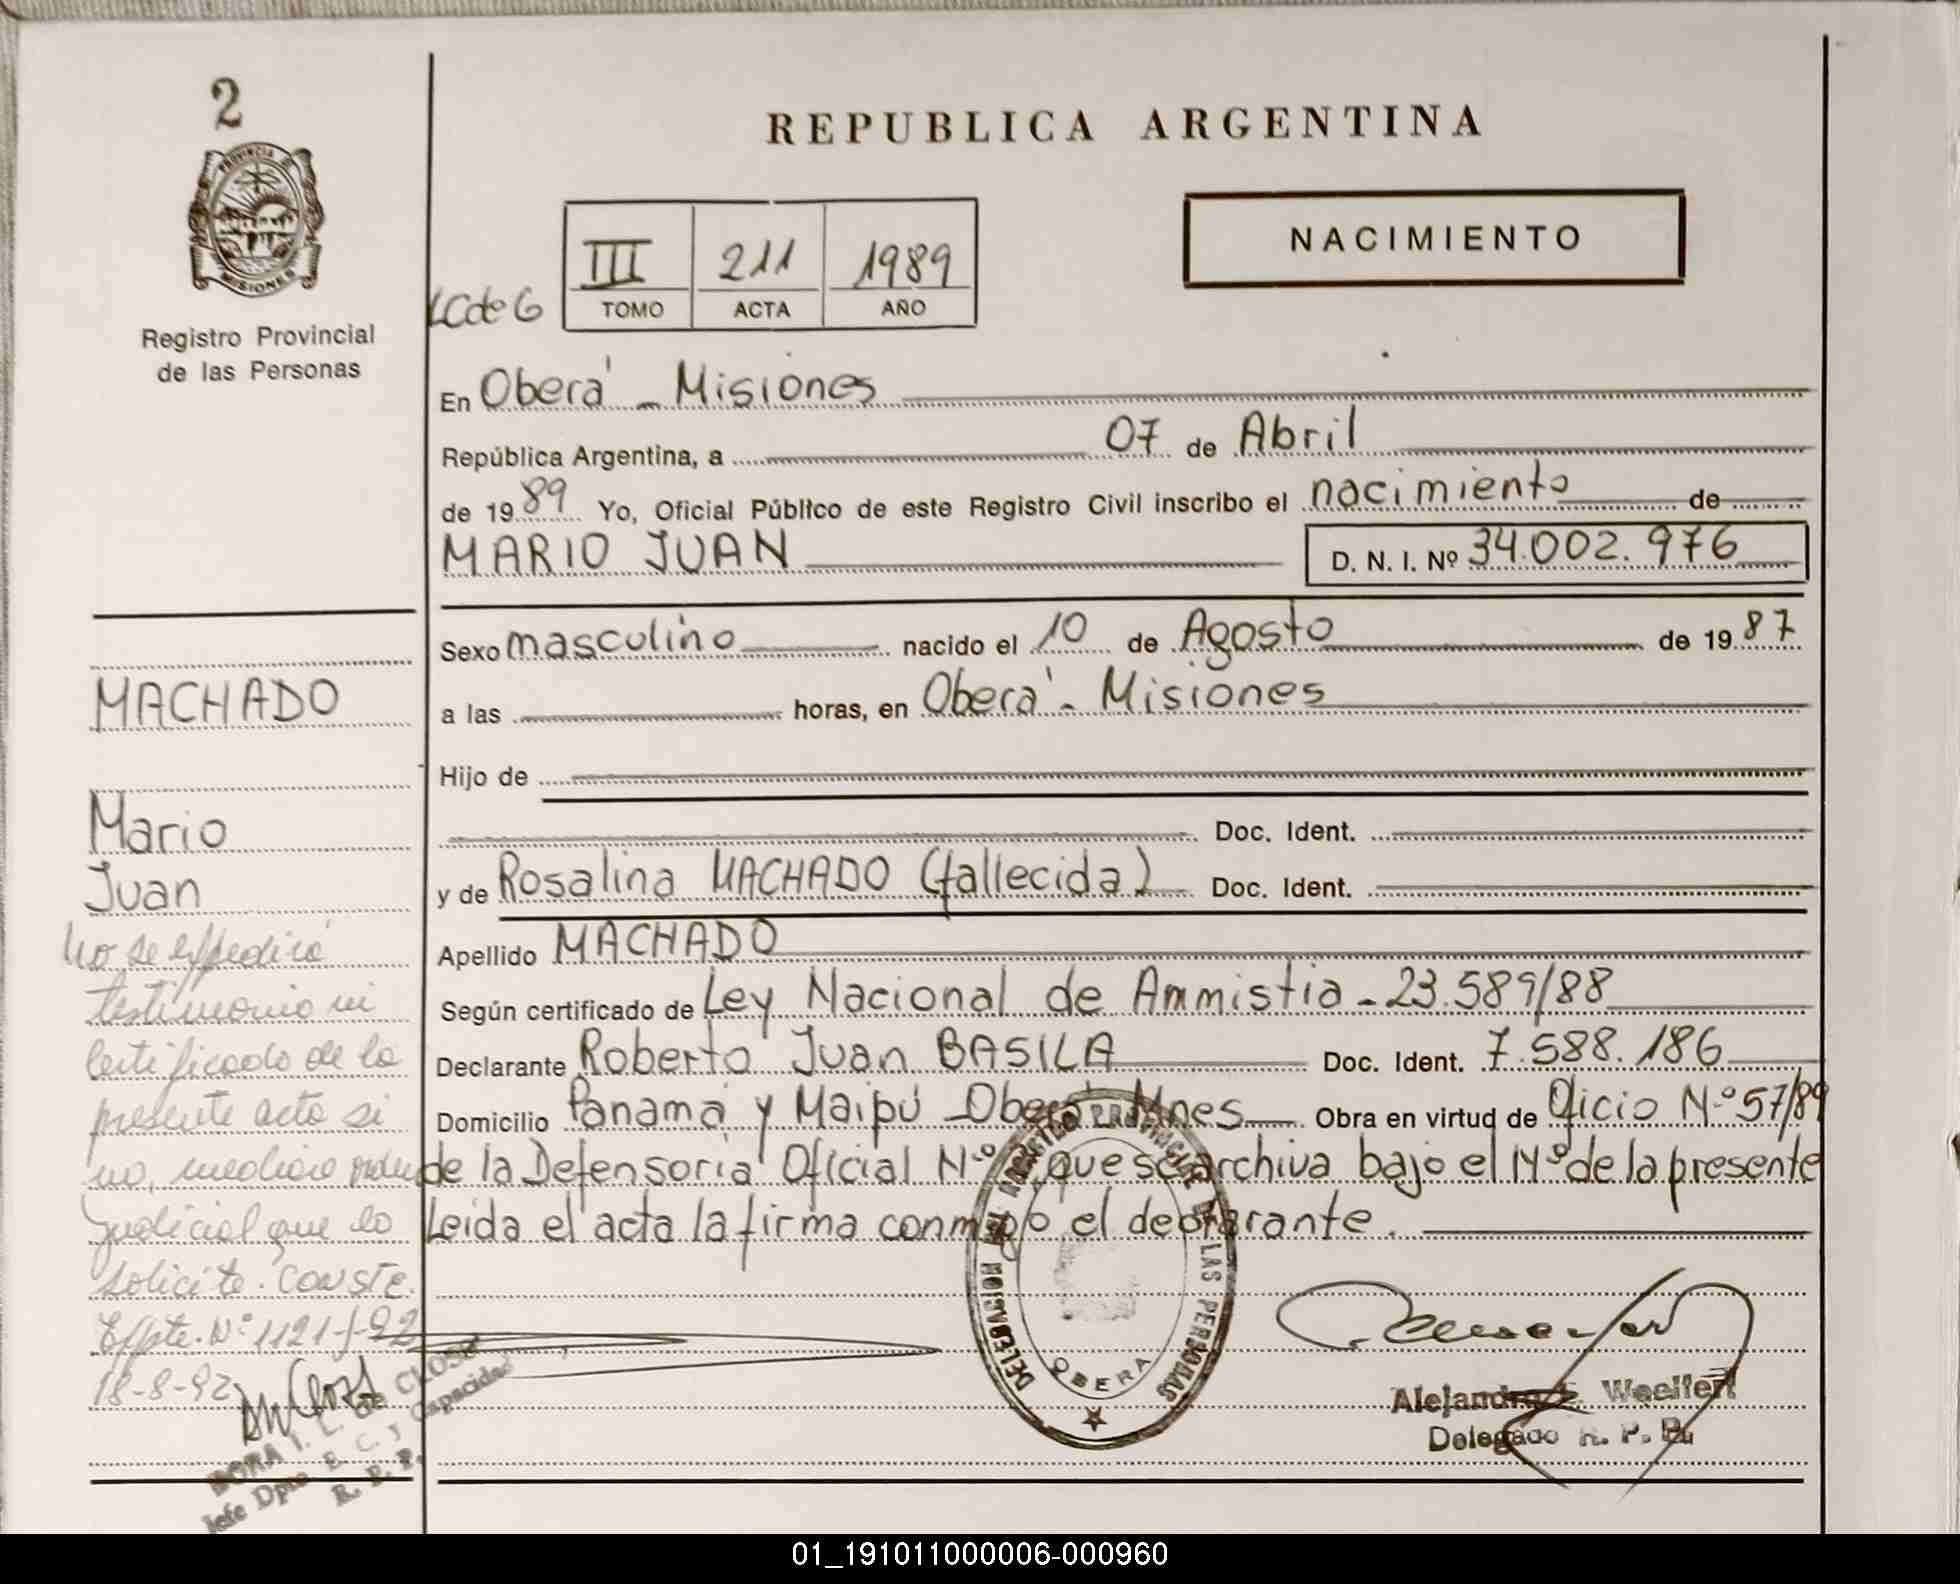 2
PROVINCIA DE
MISIONES
Registro Provincial
de las Personas
REPUBLICA ARGENTINA
NACIMIENTO
LC de G
III 211 1989
TOMO ACTA AÑO
En Oberá - Misiones
República Argentina, a 07 de Abril
de 1989 Yo, Oficial Público de este Registro Civil inscribo el nacimiento de
MARIO JUAN D. N. I. Nº 34.002.976
Sexo masculino nacido el 10 de Agosto de 1987
a las horas, en Oberá - Misiones
Hijo de
Doc. Ident.
y de Rosalina MACHADO (fallecida) Doc. Ident.
Apellido MACHADO
Según certificado de Ley Nacional de Ammistia - 23.589/88
Declarante Roberto Juan BASILA Doc. Ident. 7.588.186
Domicilio Panamá y Maipú - Oberá - Mnes Obra en virtud de Oficio N.º 57/89
de la Defensoría Oficial N.º que se archiva bajo el Nº de la presente
Leida el acta la firma conmigo el declarante.
MACHADO
Mario
Juan
No se expedirá
testimonio ni
certificado de la
presente acta si
no, mediare orden
judicial que lo
solicite. CONSTE.
Expte. Nº 1121-J-92
18-8-92
DORA I. L. de CLOSS
Jefe Dpto E. C. y Capacidad
R. P. P.
DELEGACION DEL REGISTRO PROVINCIAL DE LAS PERSONAS
OBERA
Alejandro E. Woelfert
Delegado R. P. P.
01_191011000006-000960